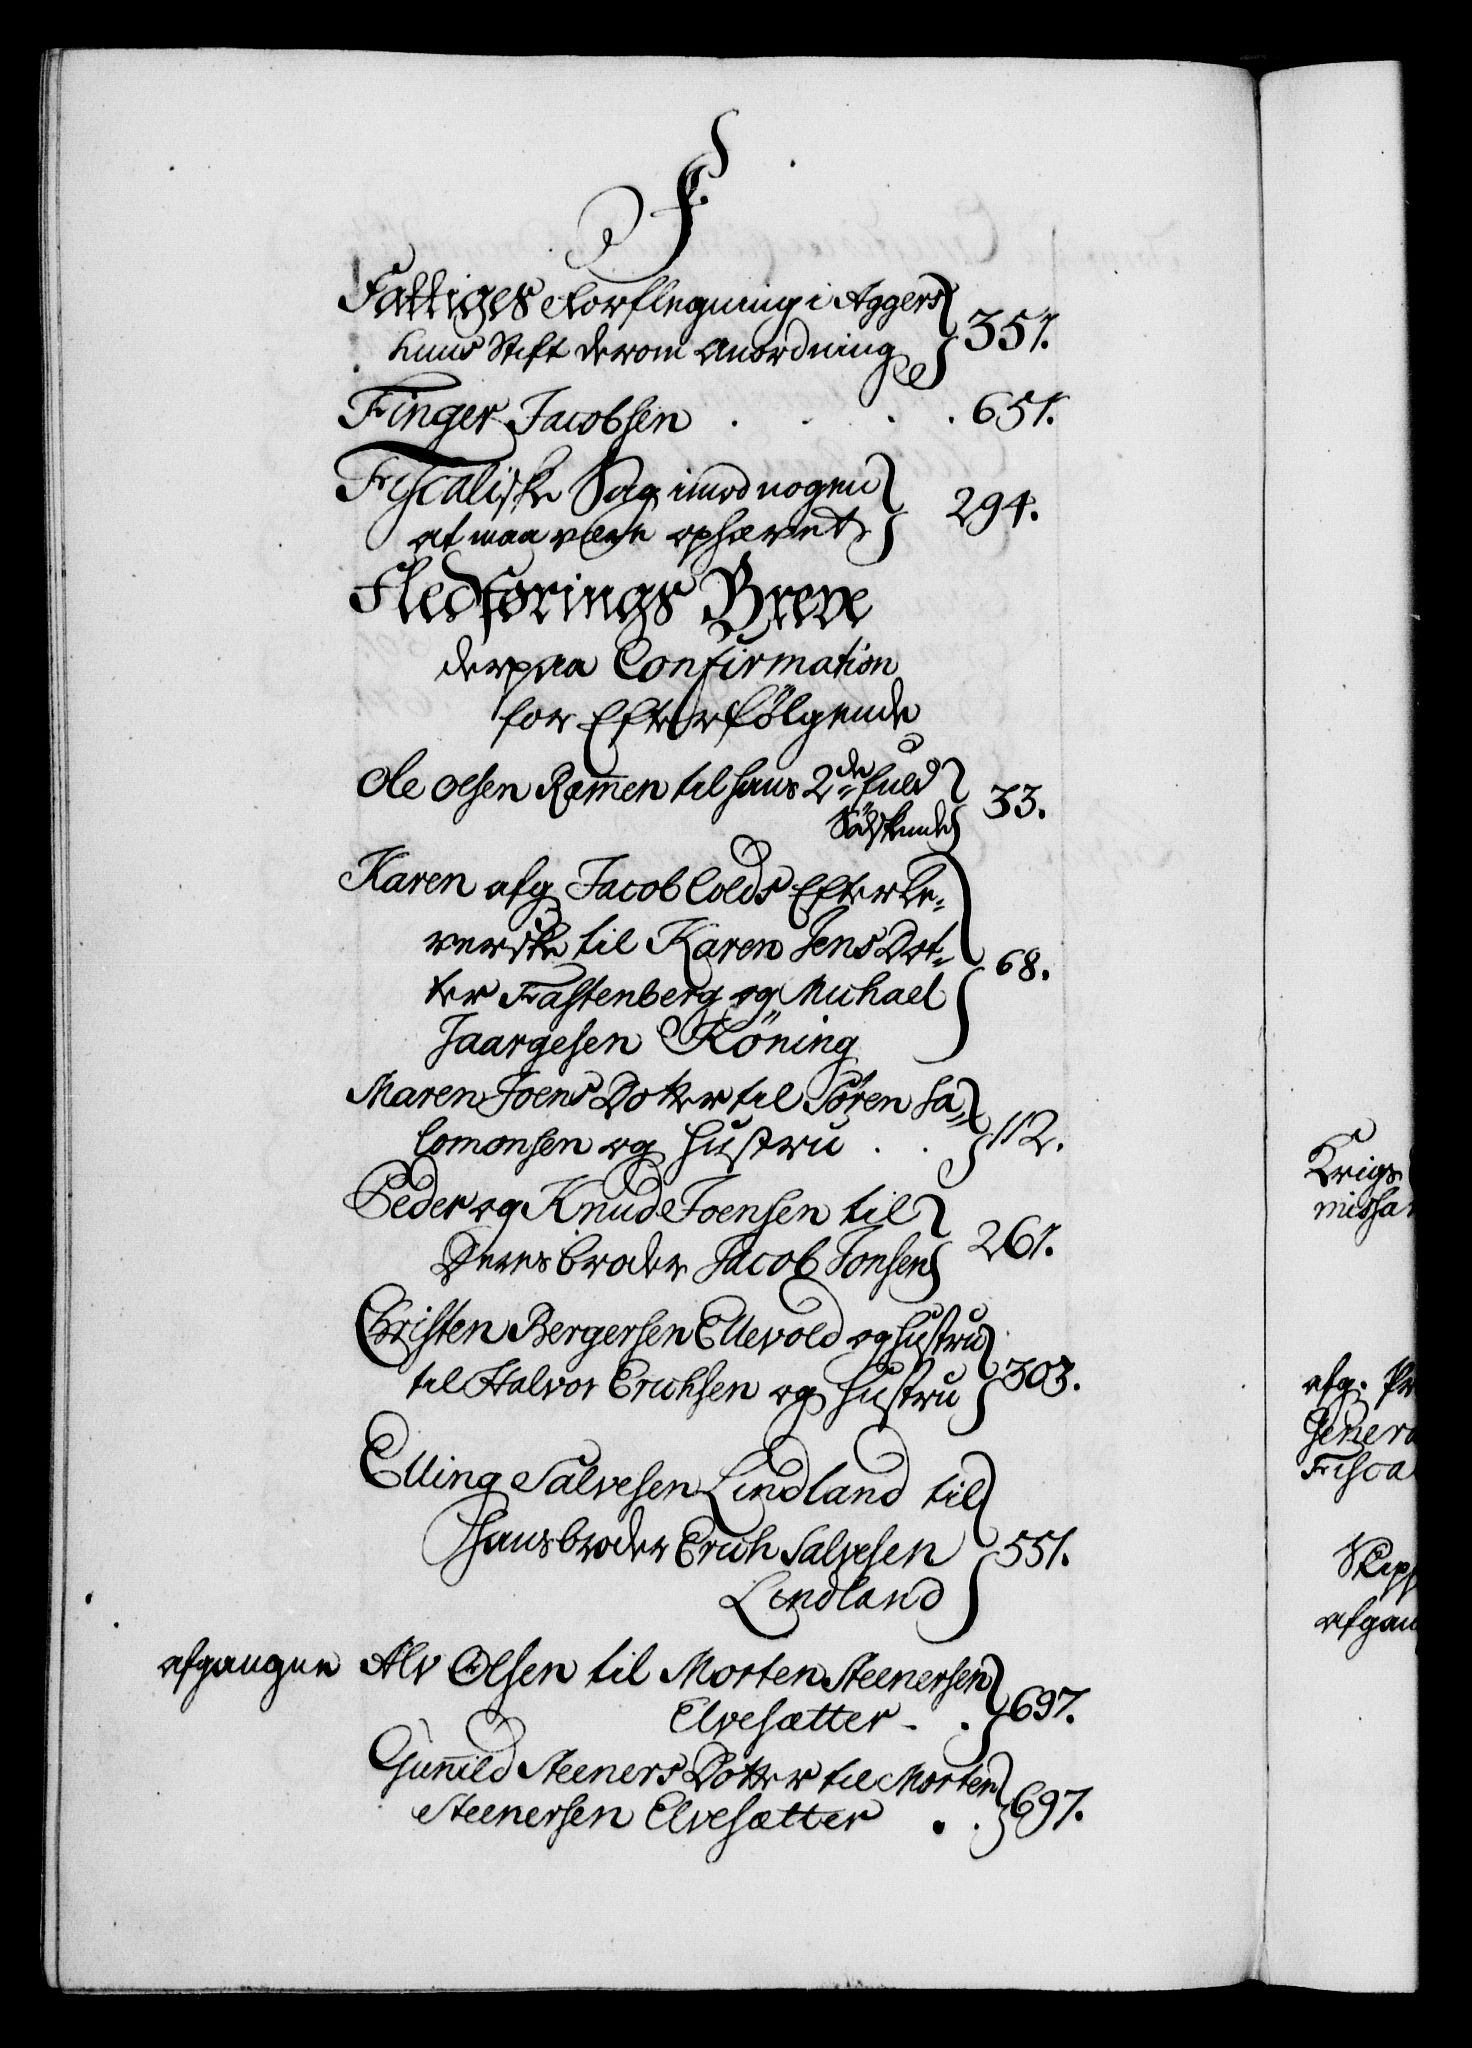 F.
Fattiges Forflegning i Aggers
huus Stift derom Anordning 351.
Finger Jacobsen . . . . 651.
Fiscaliske Sag imod nogen
at maa være ophævet 294.
Fledførings Breve
derpaa Confirmation
for Efterfölgende
Ole Olsen Ramen til hans 2de fuld
Södskende 33.
Karen afg Jacob Colds Efterle-
verske til Karen Jens Dot-
ter Fastenberg og Michael 68.
Jaargesen Köning
Maren Joens Dotter til Søren Sa-
lomonsen og Hustru . . 112.
Peder og Knud Joensen til
Deres broder Jacob Jonsen 261.
Christen Bergersen Ellevold og Hustru
til Halvor Erichsen og Hustru 303.
Elling Salvesen Lindland til
hans broder Erich Salvesen 551.
Lindland
afgangne Alv Olsen til Morten Steenersen
Elvesætter . . 697.
Gunild Steeners Dotter til Morten
Steenersen Elvesætter . . 697.
Krigs
afg. Pr
Genera
Fisca